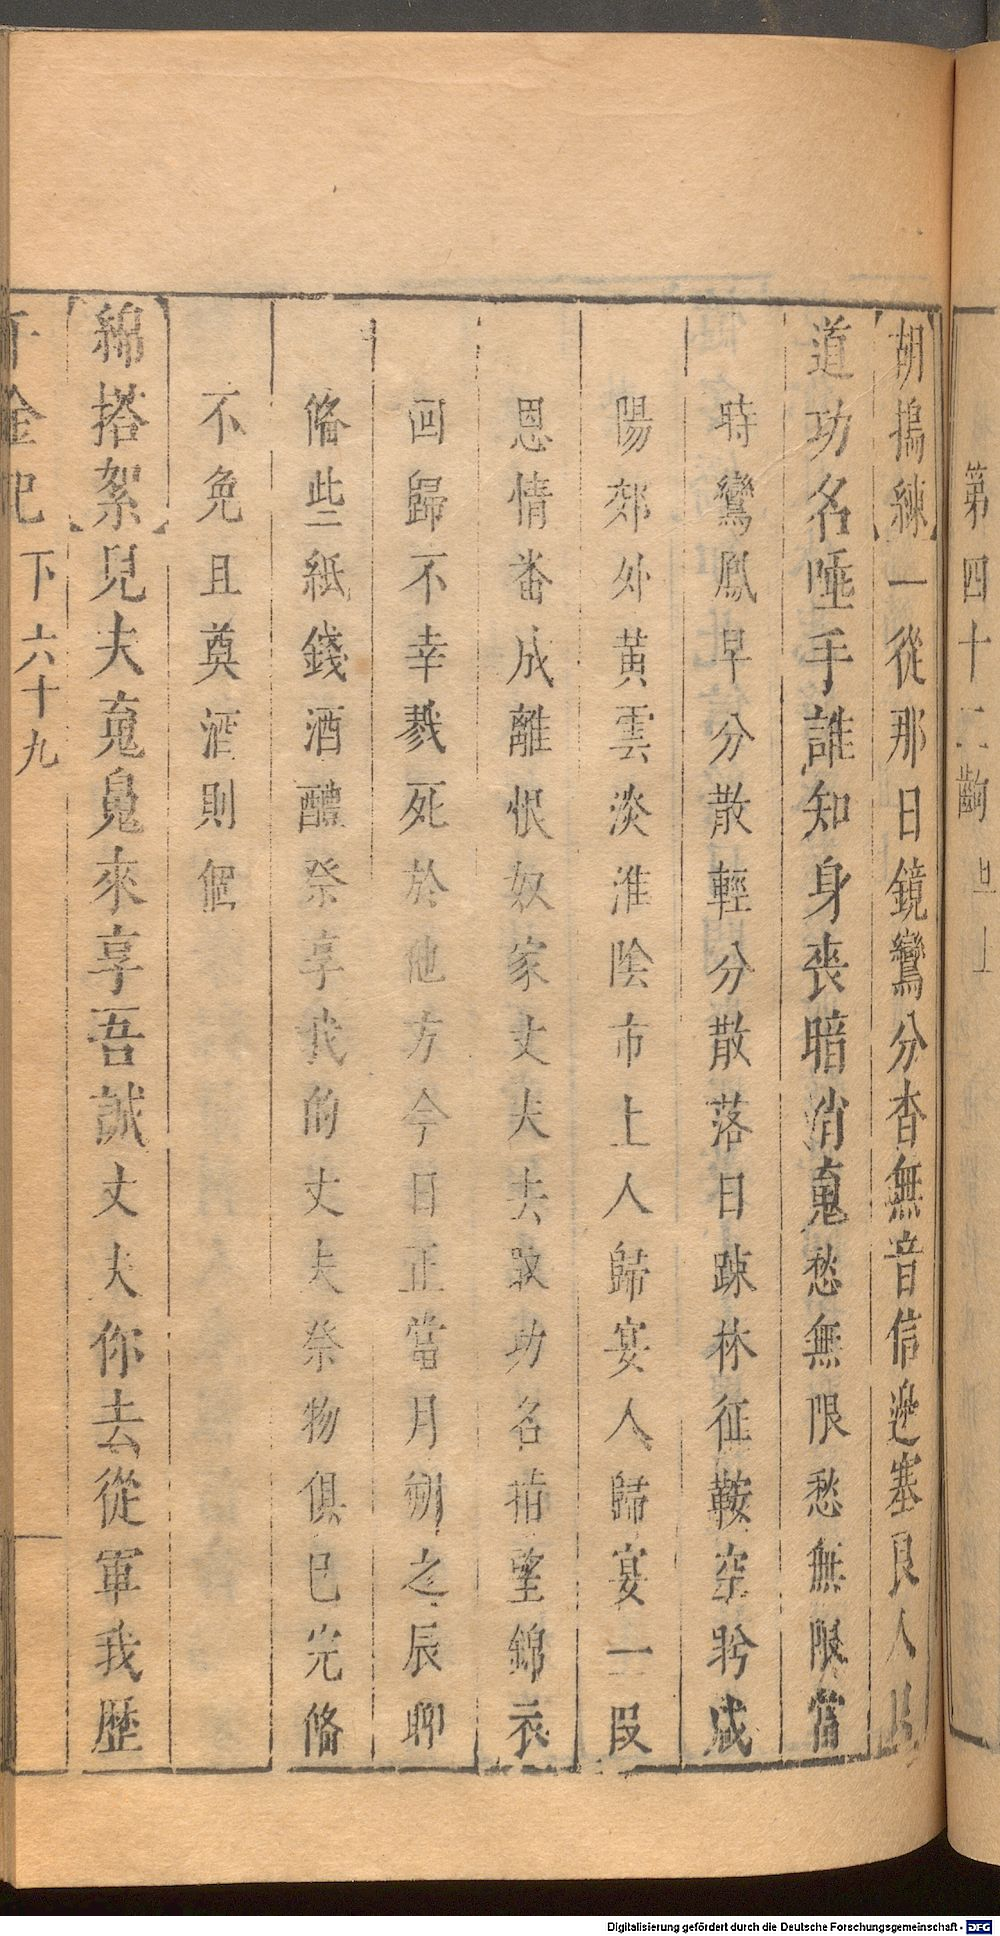 第四十二齣 旦上
【胡搗練】一從那日鏡鸞分杳無音信邊塞良人
道功名唾手誰知身喪暗消䰟愁無限愁無限當
時鸞鳳早分散輕分散落日疎林征鞍空盻咸
陽郊外黃雲淡淮陰市上人歸宴人歸宴一叚
恩情番成離恨奴家丈夫去取功名指望錦衣
囬歸不幸戮死於他方今日正當月朔之辰聊
俻些紙錢酒醴祭享我的丈夫祭物俱已完俻
不免且奠酒則個
【綿搭絮】兒夫䰟鬼來享吾誠丈夫你去從軍我歷
千金記 下 六十九